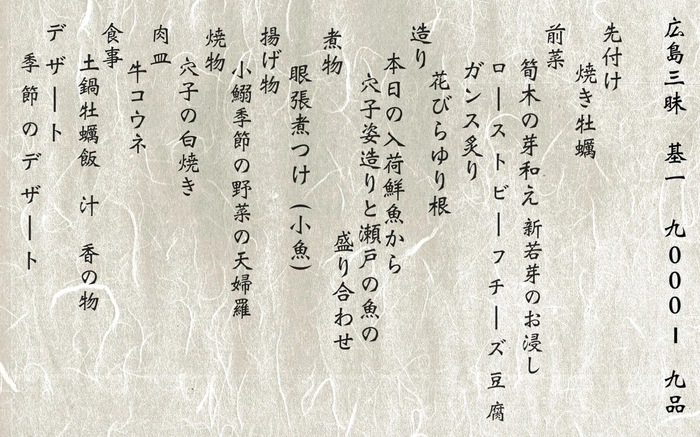 広島三昧 基一 九000ー 九品
先付け
焼き牡蠣
前菜
筍木の芽和え 新若芽のお浸し
ローストビーフチーズ豆腐
ガンス炙り
花びらゆり根
造り
本日の入荷鮮魚から
穴子姿造りと瀬戸の魚の
盛り合わせ
煮物
眼張煮つけ(小魚)
揚げ物
小鰯季節の野菜の天婦羅
焼物
穴子の白焼き
肉皿
牛コウネ
食事
土鍋牡蠣飯 汁 香の物
デザート
季節のデザート